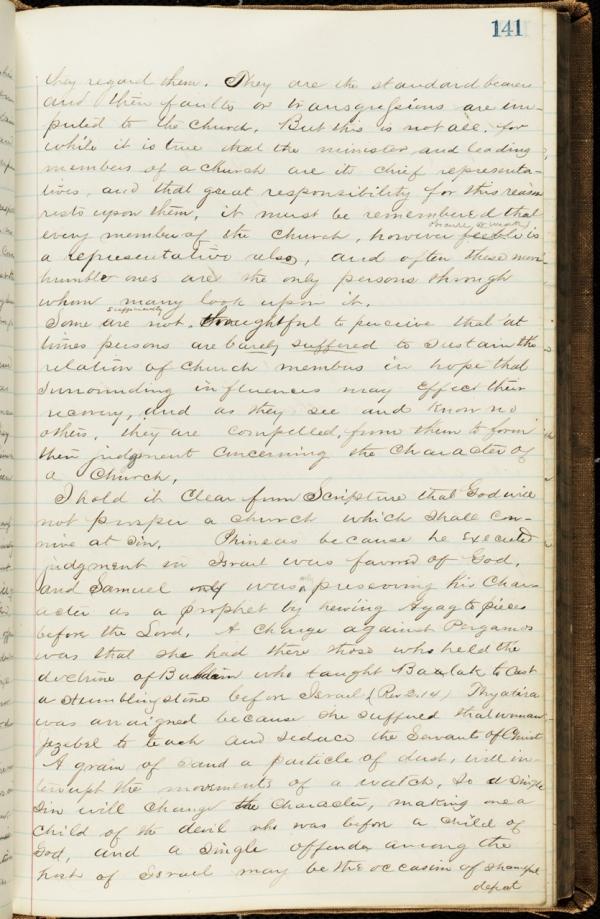 141
they regard them. They are the standard bearers
and their faults or transgressions are im-
puted to the Church. But this is not all. for
while it is true that the minister and leading
members of a Church are its chief representa-
tives, and that great responsibility for this reason
rests upon them, it must be remembered that
every member of the Church, however feeble is
a representative also, and often these more
humble ones are the only persons through
whom many look upon it.
sufficiently
Some are not thoughtful to perceive that at
times persons are barely suffered to sustain the
relation of Church members in hope that
surrounding influences may effect their
recovery, and as they see and know no
others, they are compelled from them to form
their judgment concerning the Character of
a Church.
I hold it clear from Scripture that God will
not prosper a church which shall con-
nive at sin. Phineas because he executed
judgment in Israel was favored of God,
and Samuel only was preserving his Char-
acter as a prophet by hewing Agag to pieces
before the Lord. A Charge against Pergamos
was that she had there those who held the
doctrine of Balaam who taught Baalak to Cast
a stumbling stone before Israel (Rev 2:14) Thyatira
was arraigned because she suffered that woman
Jezibel to teach and seduce the servants of Christ
A grain of sand a particle of dust, will in-
terrupt the movements of a watch, so a single
sin will change the Character, making one a
child of the devil who was before a child of
God, and a single offender among the
host of Israel may be the occasion of shameful
defeat